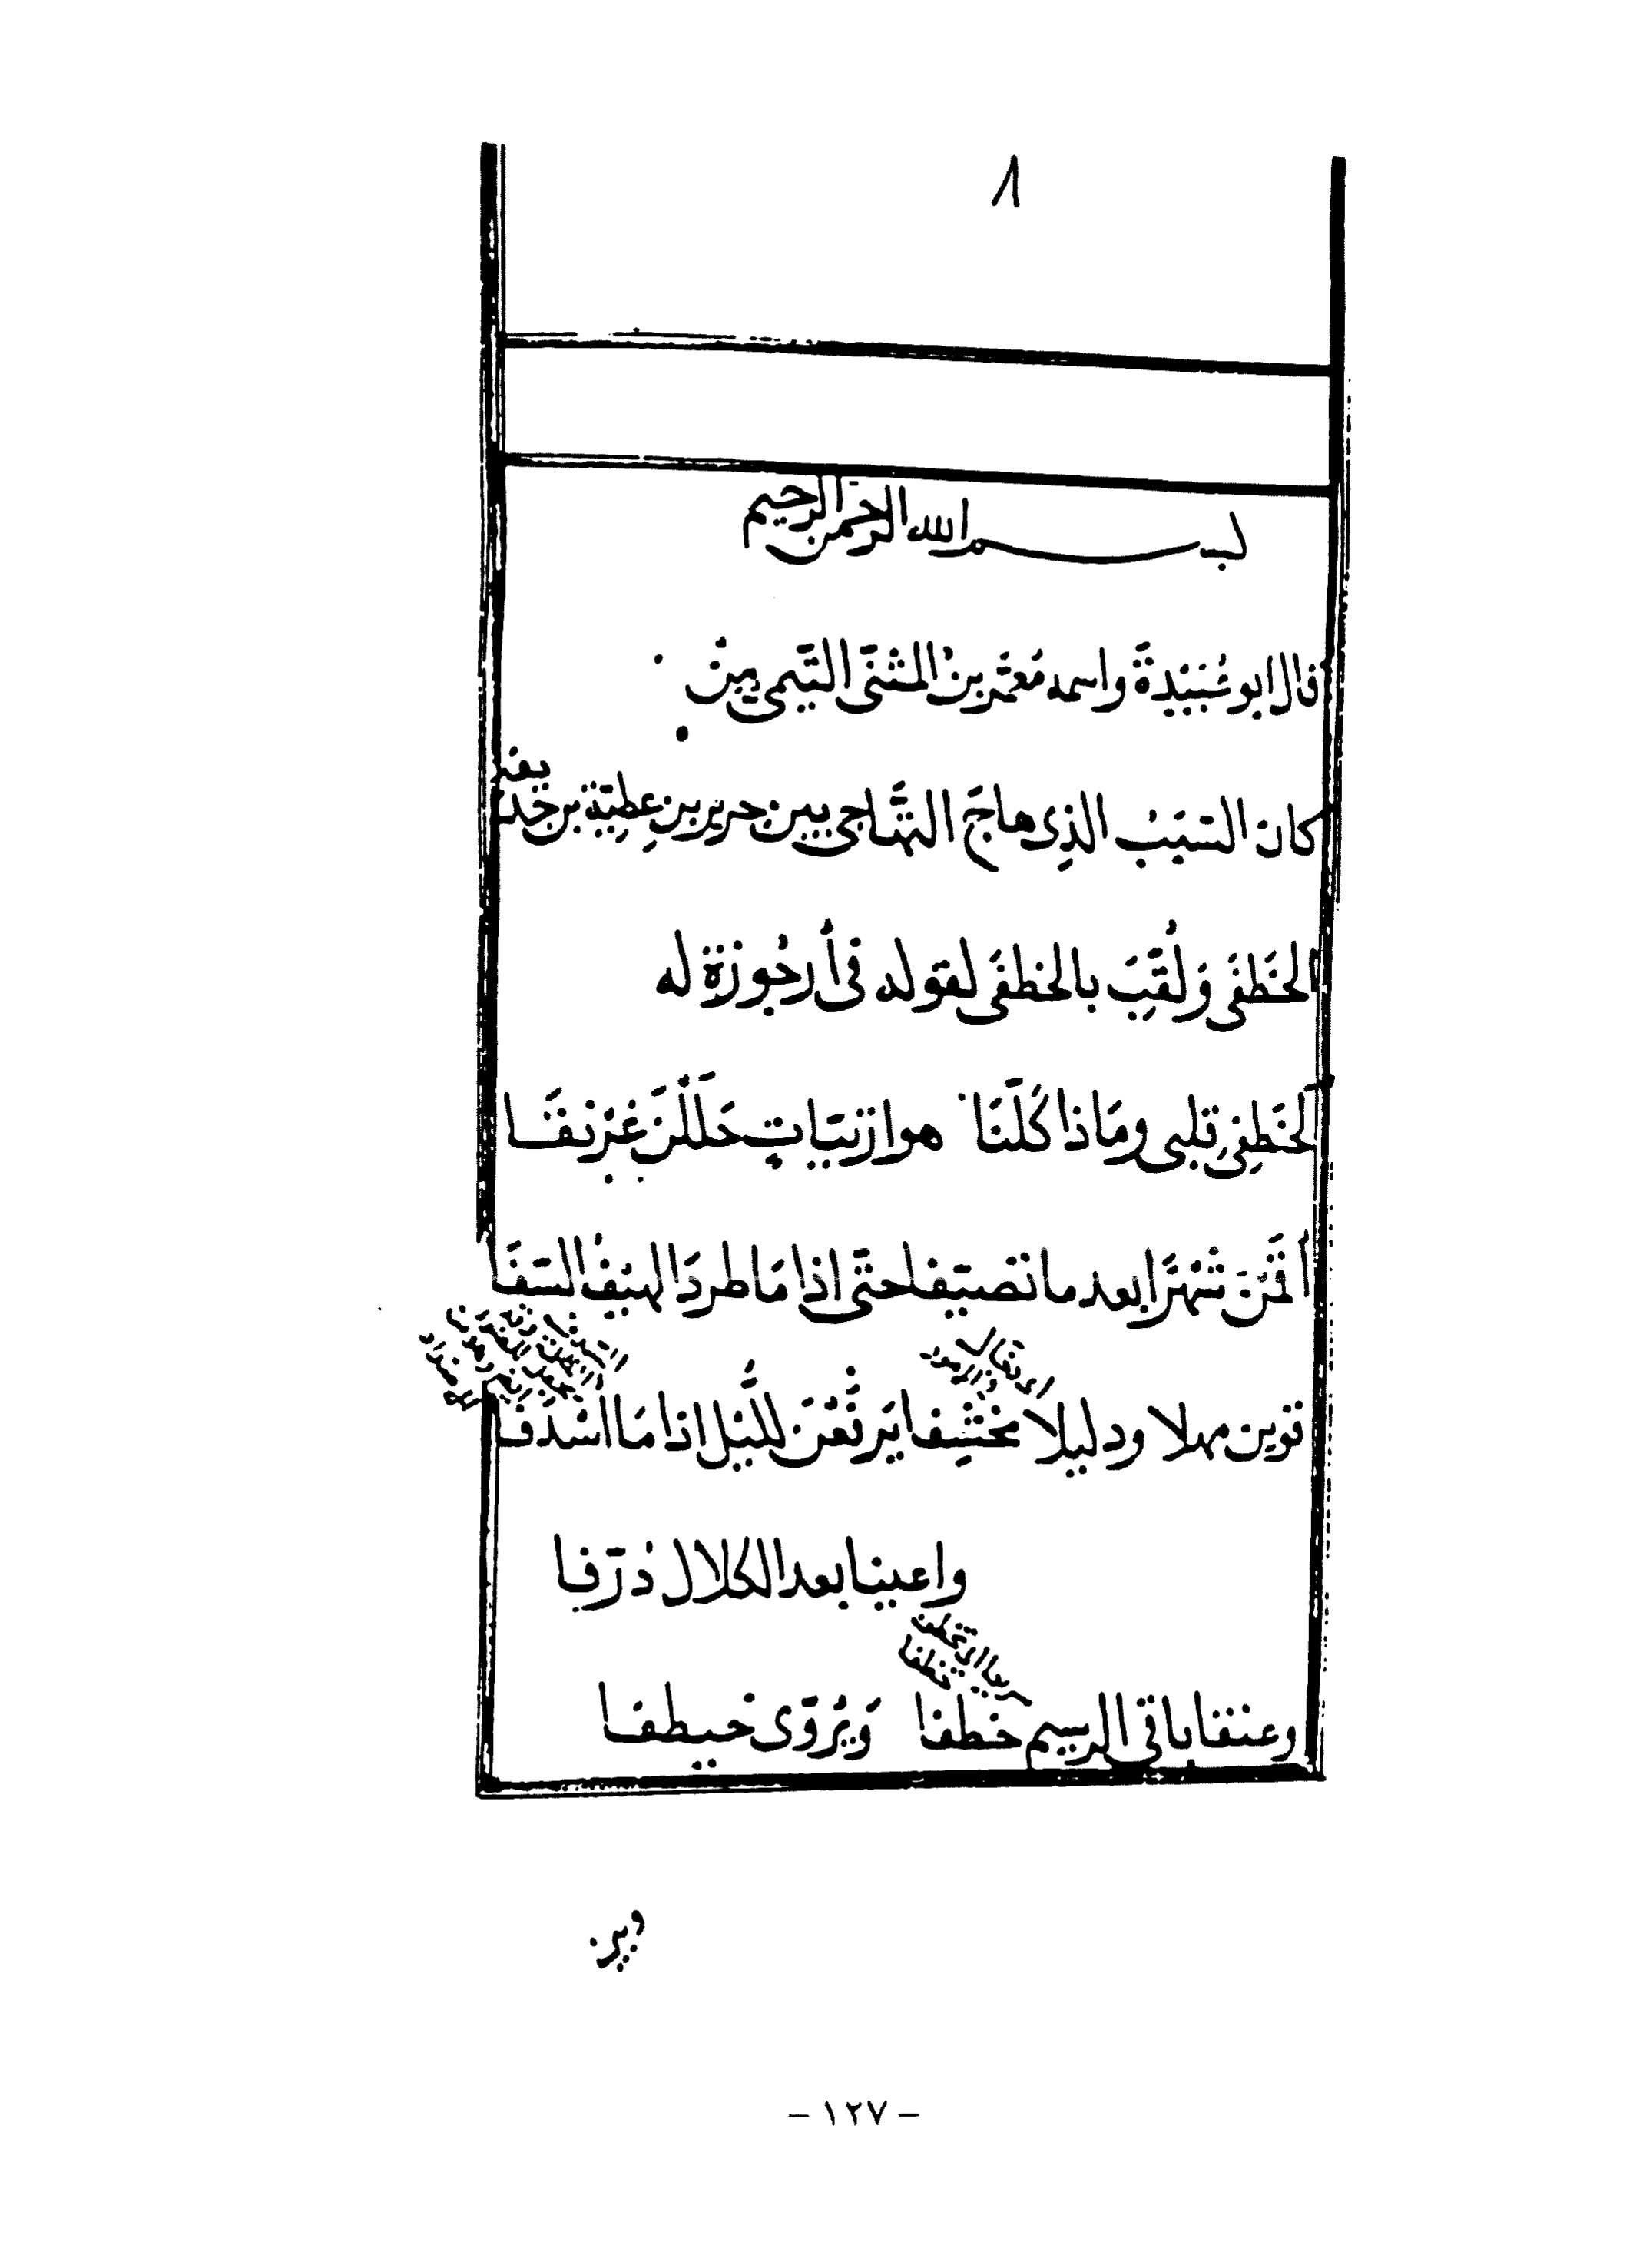 ٨
بسم الله الرحمن الرحيم
قال ابو عُبَيْدَةَ واسمه مُعَمَّر بنُ المثنَّى التَّيمى مِنْ
كان السَّبَبُ الذِى هاجَ التَّهَاجِى بين جرير بنِ عطِيَّة بن حُذَيفة
الخَطَفَى وَلُقِّبَ بالخطفَى لقوله فى أُرجُوزة له
كَلَّفَنَا قلبى وَمَاذا كَلَّفَنَا هوازنيَّاتٍ حَلَلْنَ غَرْنفَا
أقَمْنَ شَهْرًا بعد ما تصيَّفا حتَّى اذا مَا طردَ الهَيْفُ السَّفَا
قرَّبن مهلا ودليلا مِخْشَفا يَرفَعْنَ للَّيْل اذا مَا اسْدَفَا
واعينا بعد الكلال ذرَّفا
وعنقا باقى الرسيم خطفا وَيُرْوَى خيطفا
- ١٢٧ -